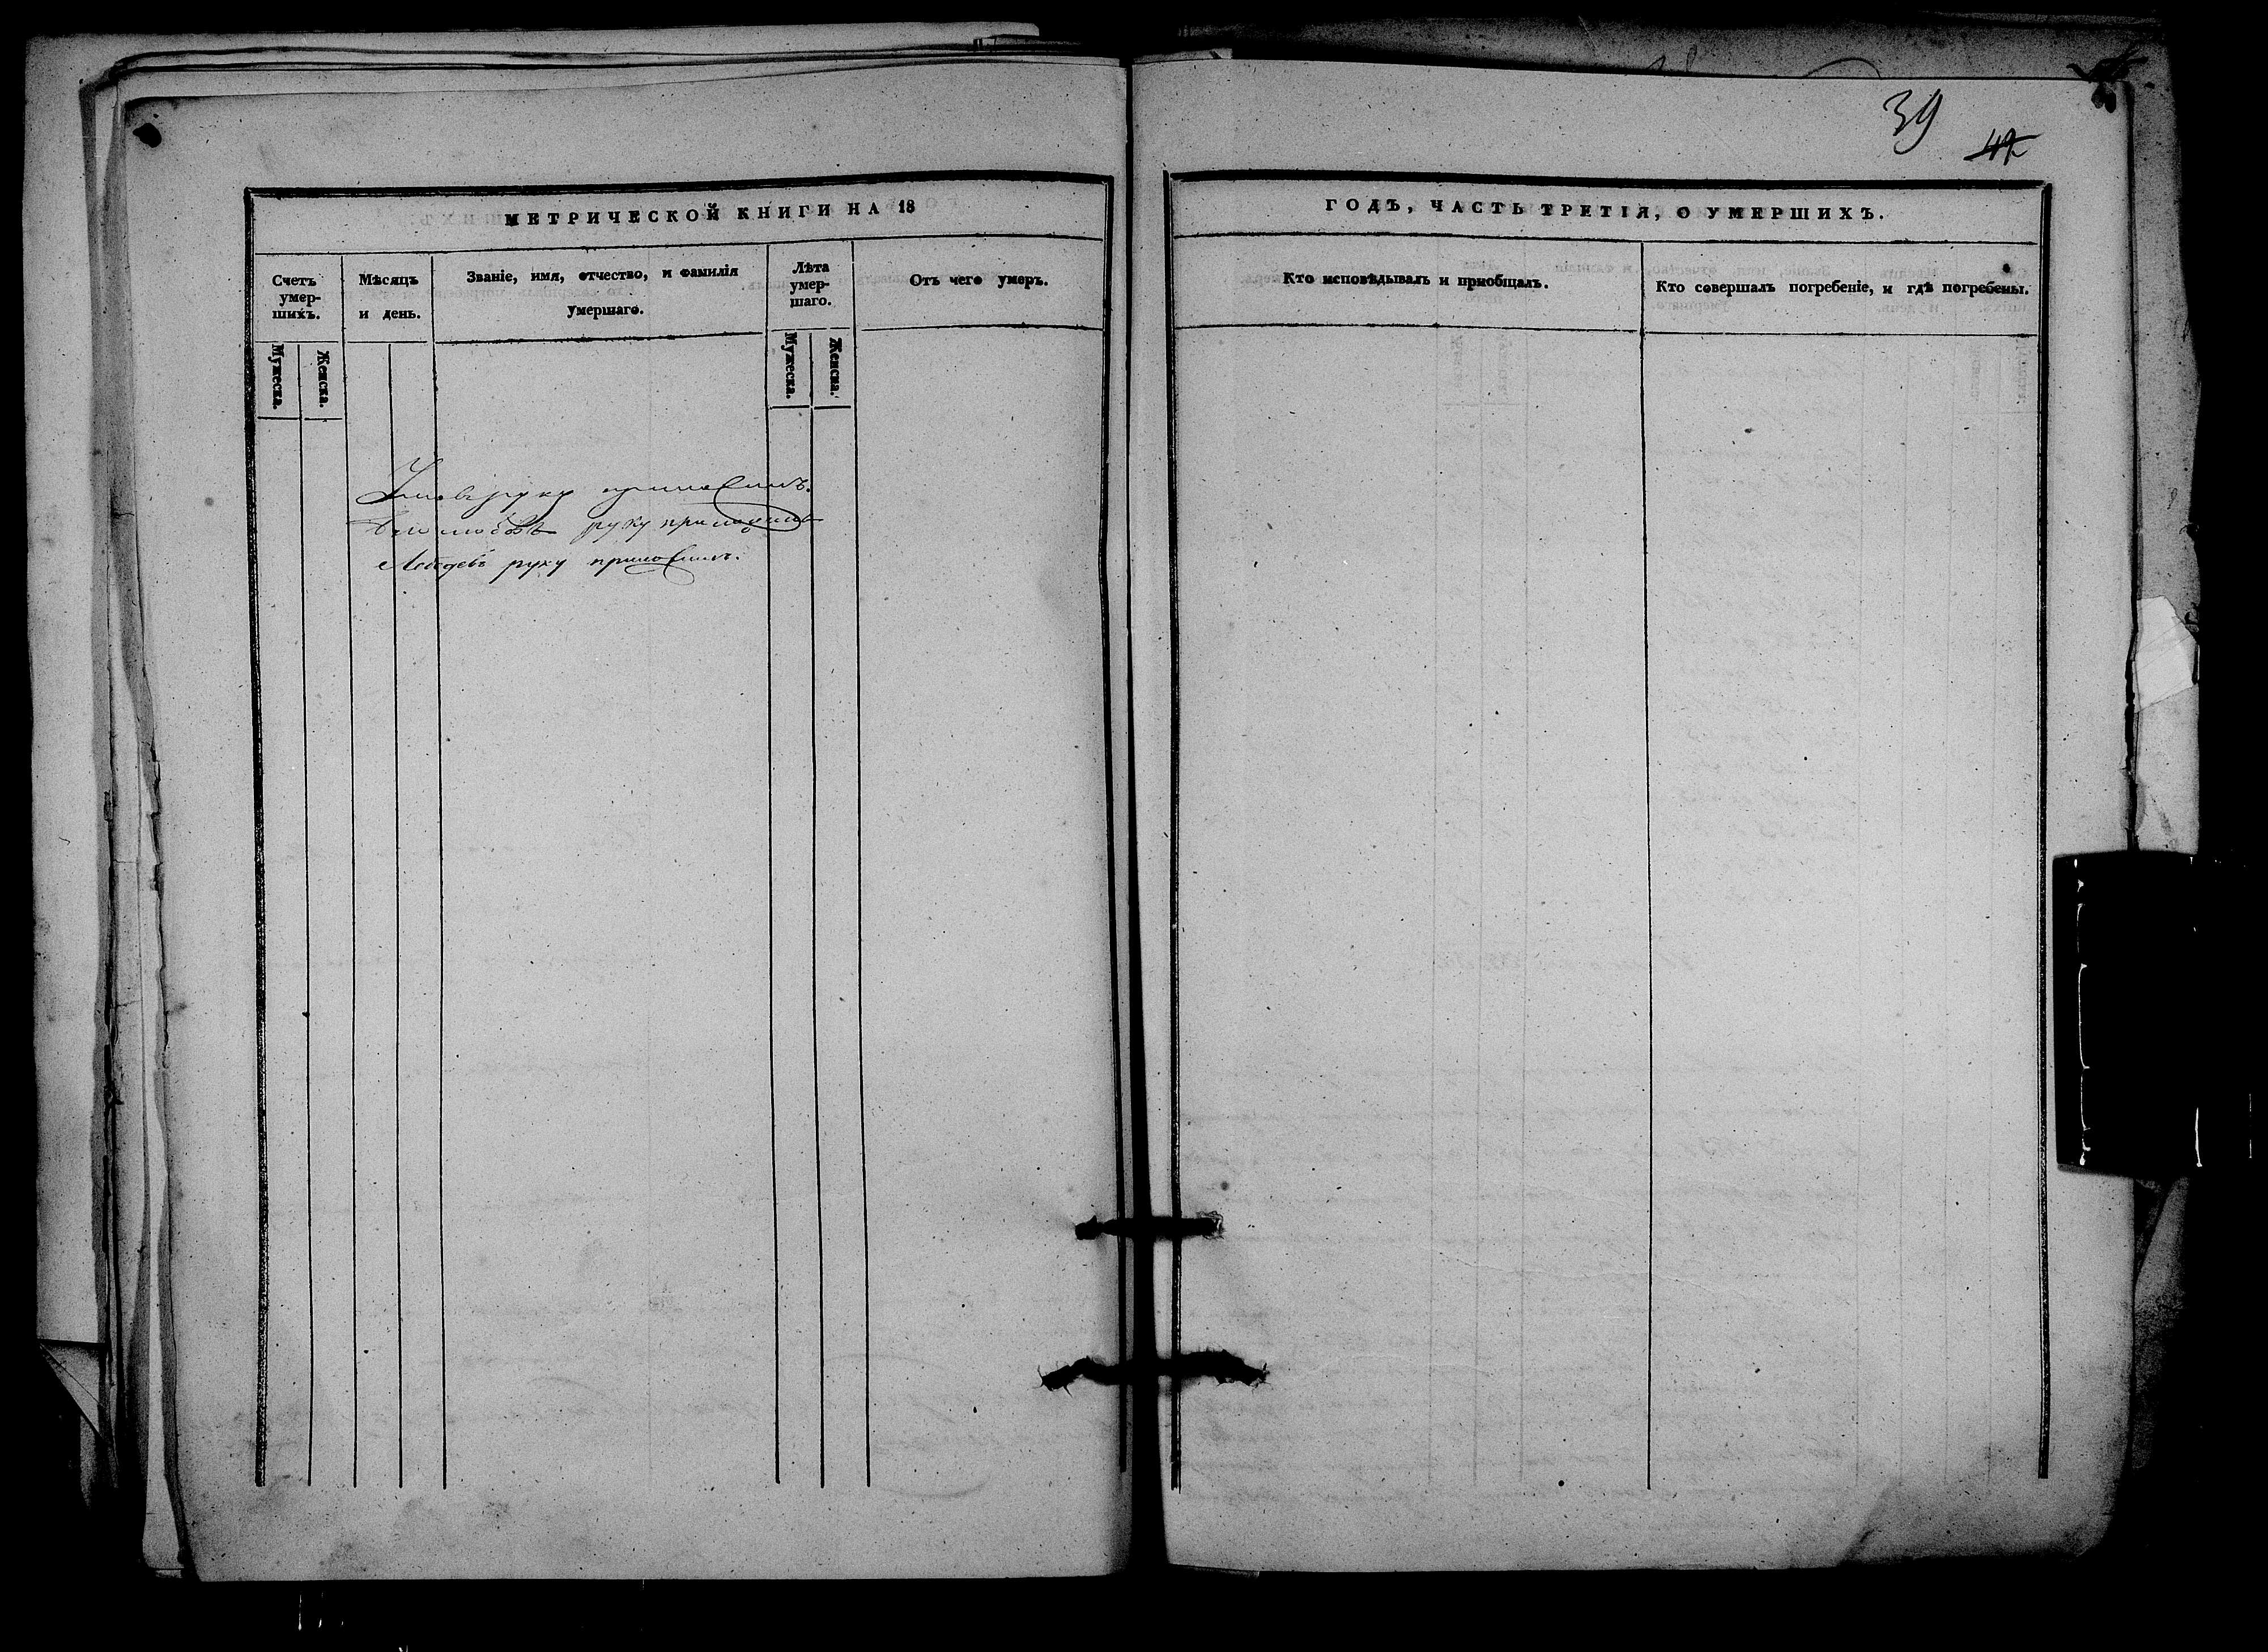 39
42
МЕТРИЧЕСКОЙ КНИГИ НА 18
ГОДЪ, ЧАСТЬ ТРЕТІЯ, О УМЕРШИХЪ.
Счетъ
умер-
шихъ.
Мужеска.
Женска.
Мѣсяцъ
и день.
Званіе, имя, отчество, и фамилія
умершаго.
Лѣта
умер-
шаго.
Мужеска.
Женска.
Отъ чего умеръ.
Кто исповѣдывалъ и пріобщалъ.
Кто совершалъ погребеніе, и гдѣ погребены.
руку приложилъ.
руку приложилъ
Лебедевъ руку приложилъ.